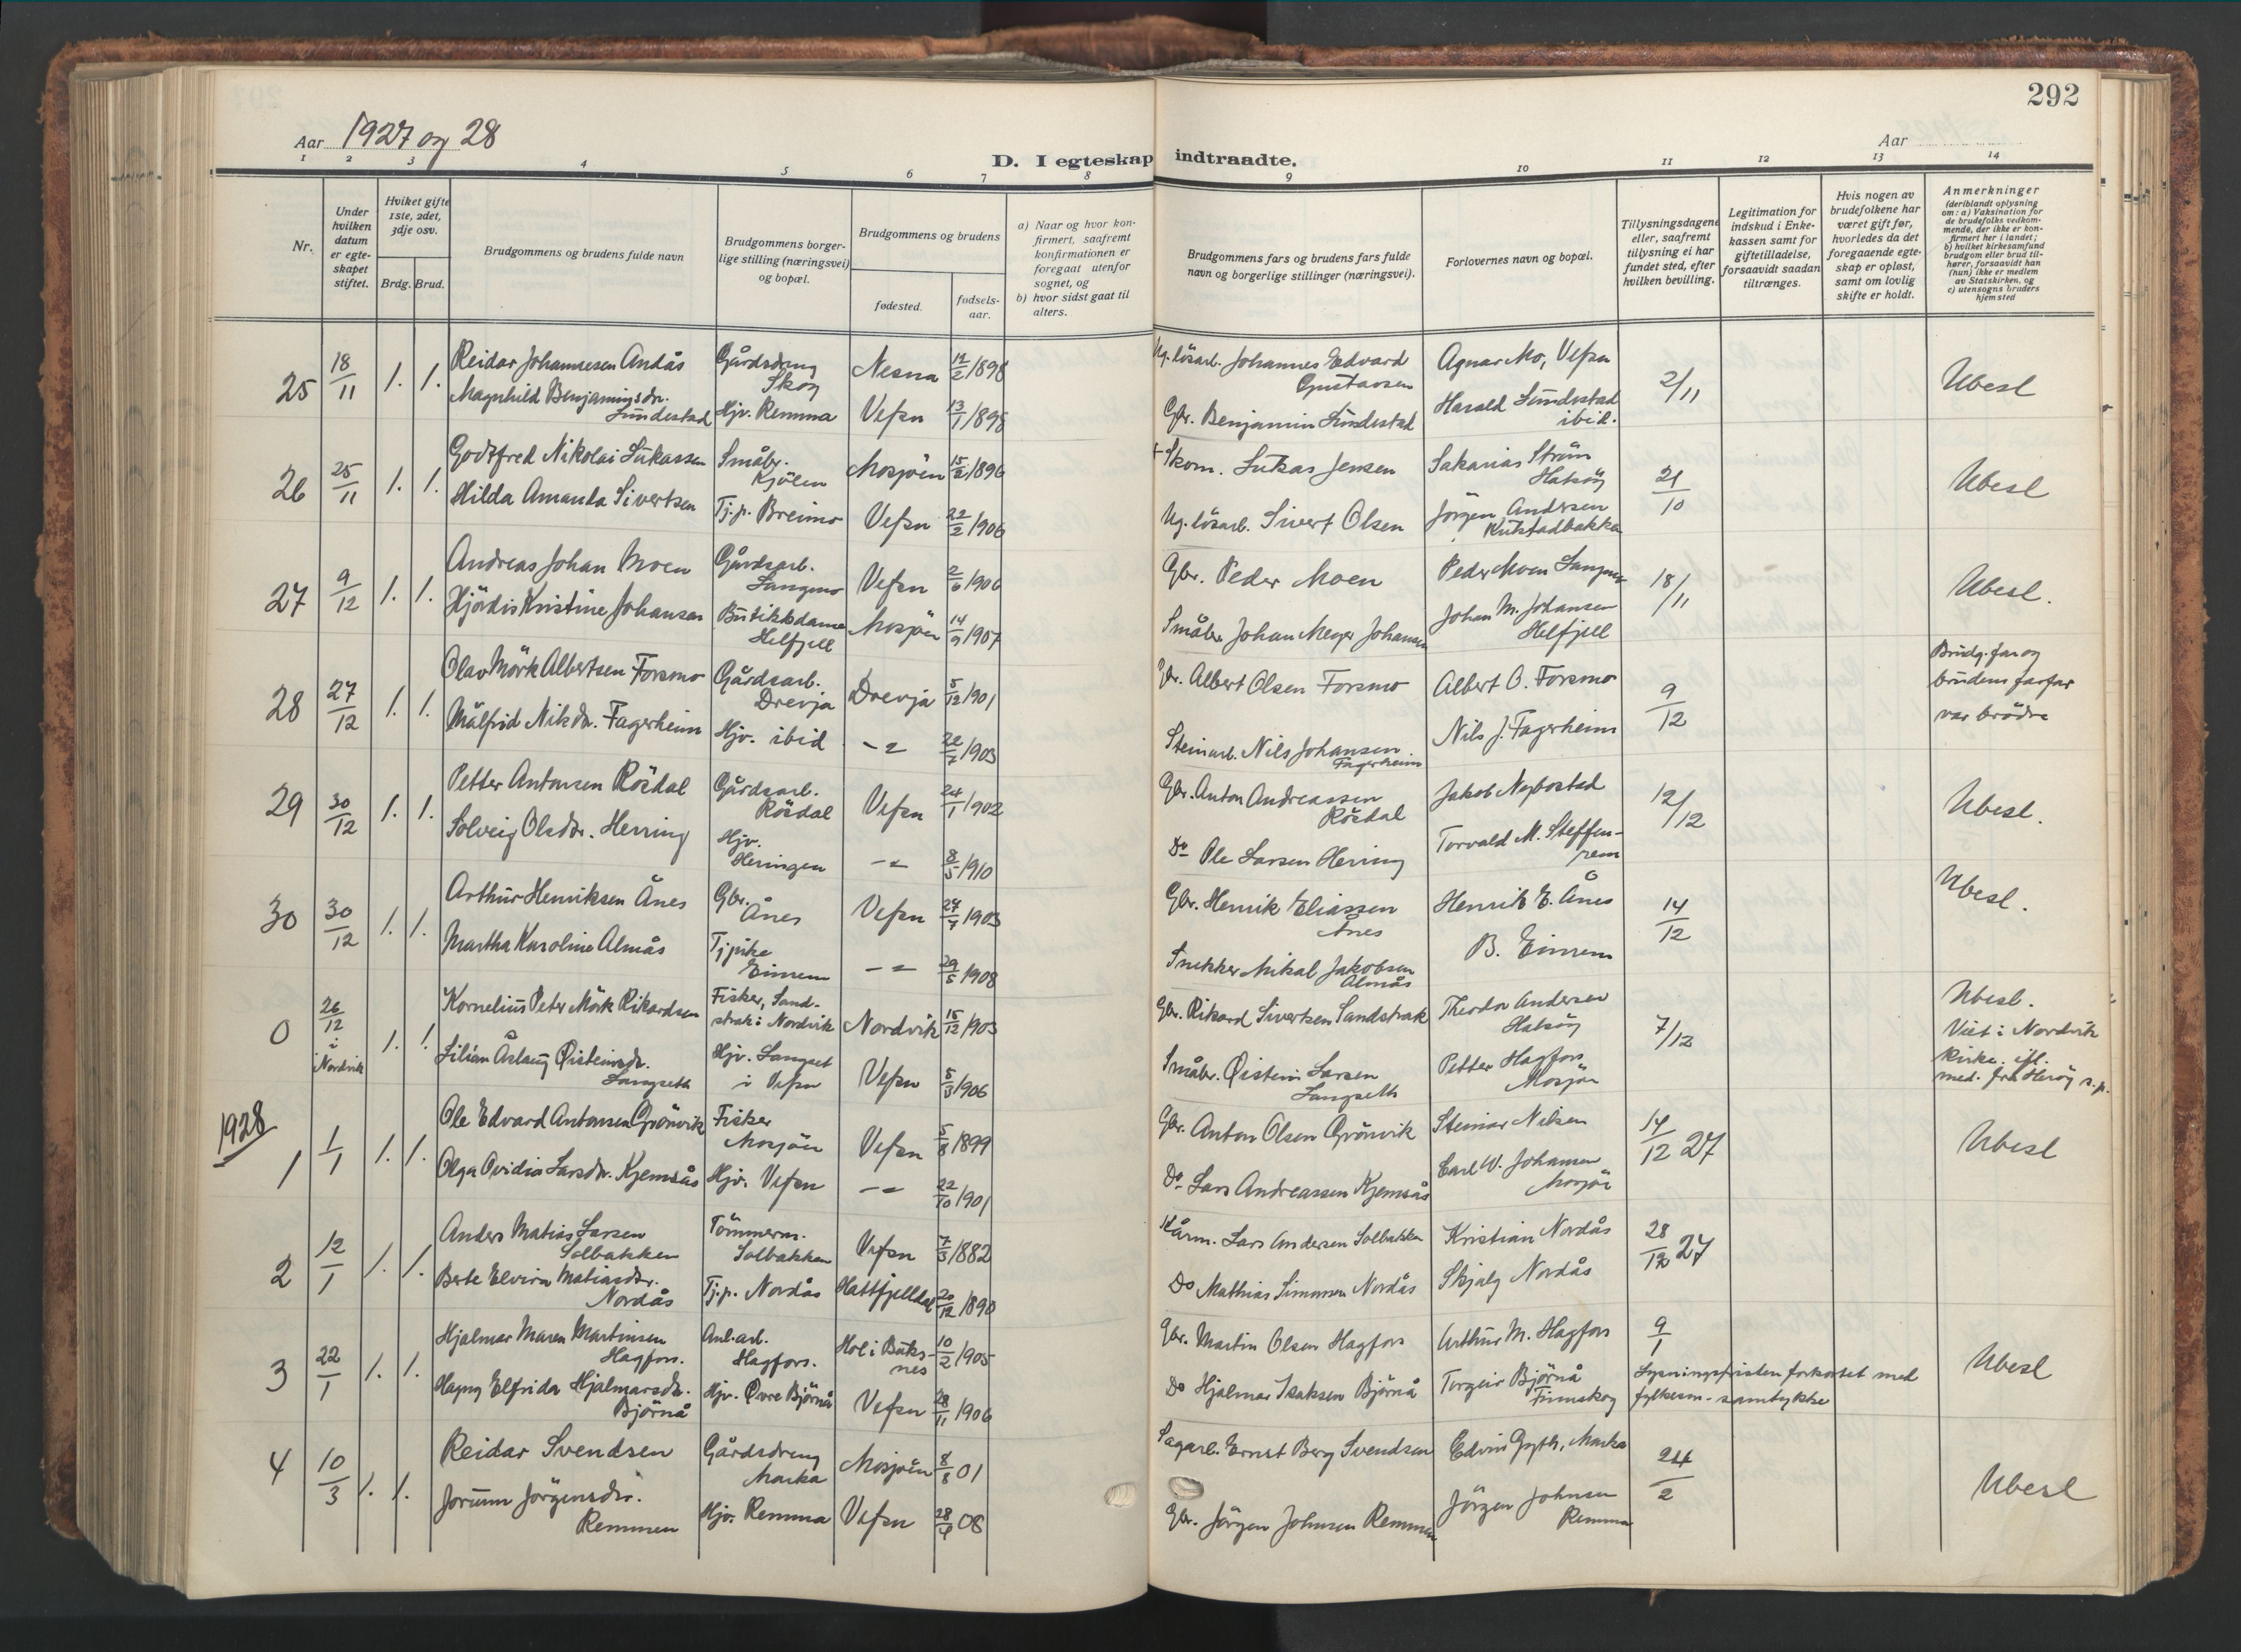 292
Aar 1927 og 28
Aar
D. I egteskap indtraadte.
1 2 3 4 5 6 7 8 9 10 11 12 13 14
Nr.
Under hvilken datum er egteskapet stiftet.
Hviket gifte 1ste, 2det, 3dje osv.
Brdg. Brud.
Brudgommens og brudens fulde navn
Brudgommens borgerlige stilling (næringsvei) og bopæl.
Brudgommens og brudens
fødested.
fødselsaar.
a) Naar og hvor konfirmert, saafremt konfirmationen er foregaat utenfor sognet, og
b) hvor sidst gaat til alters.
Brudgommens fars og brudens fars fulde navn og borgerlige stillinger (næringsvei).
Forlovernes navn og bopæl.
Tillysningsdagene eller, saafremt tillysning ei har fundet sted, efter hvilken bevilling.
Legitimation for indskud i Enkekassen samt for giftetilladelse, forsaavidt saadan tiltrænges.
Hvis nogen av brudefolkene har været gift før, hvorledes da det foregaaende egteskap er opløst, samt om lovlig skifte er holdt.
Anmerkninger (deriblandt oplysning om: a) Vaksination for de brudefolks vedkommende, der ikke er konfirmert her i landet; b) hvilket kirkesamfund brudgom eller brud tilhører, forsaavidt han (hun) ikke er medlem av Statskirken, og c) utensogns bruders hjemsted
25 18/11 1. 1. Reidar Johannesen Andås Gårdsdreng Skog Nesna 1898 Ug. lösarb. Johannes Edvard Gustavsen Agnar Mo, Vefsn 2/11 Ubesl
Magnhild Benjaminsdr. Sundestad Hjv. Remma Vefsn 13/1 1898 Gbr. Benjamin Sundestad Harald Sundestad ibid.
26 25/11 1. 1. Godtfred Nikolai Lukassen Småbr. Kjölen Mosjöen 15/2 1896 + Skom. Lukas Jensen Sakarias Ström Halsöy 21/10 Ubesl
Hilda Amanda Sivertsen Tj.p. Breimo Vefsn 22/2 1906 Ug. lösarb. Sivert Olsen Jörgen Andersen Kulstadbakka
27 9/12 1. 1. Andreas Johan Moen Gårdsarb. Langmo Vefsn 2/6 1906 Gbr. Peder Moen Peder Moen Langmo 18/11 Ubesl.
Hjördis Kristine Johansen Butikkdame Helfjell Mosjöen 14/9 1907 Småbr. Johan Meyer Johansen Johan M. Johansen Helfjell
28 27/12 1. 1. Olav Mörk Albertsen Forsmo Gårdsarb. Drevja Drevja 5/12 1901 Gbr. Albert Olsen Forsmo Albert O. Forsmo 9/12 Brudg. far og brudens farfar var brödre
Målfrid Nilsdr. Fagerheim Hjv. ibid -"- 22/7 1903 Steinarb. Nils Johansen Fagerheim Nils J. Fagerheim
29 30/12 1. 1. Petter Antonsen Rösdal Gårdsarb. Rösdal Vefsn 24/1 1902 Gbr. Anton Andreassen Rösdal Jakob Nybostad 12/12 Ubesl.
Solveig Olsdr. Herring Hjv. Heringen -"- 8/5 1910 Do Ole Larsen Herring Torvald M. Steffenrem
30 30/12 1. 1. Arthur Henriksen Ånes Gbr. Ånes Vefsn 1903 Gbr. Henrik Eliassen Ånes Henrik E. Ånes 14/12 Ubesl.
Martha Karoline Almås Tj.pike Einrem -"- 29/5 1908 Snekker Mikal Jakobsen Almås B. Einrem
0 26/12 i Nordvik 1. 1. Kornelius Peter Mörk Rikardsen Fisker, Sandstrak i Nordvik Nordvik 15/12 1903 Gbr. Rikard Sivertsen Sandstrak Theodor Andersen Halsöy 7/12 Ubesl. Viet i Nordvik kirke. ifl. med. fra Heröy s.p.
Lilian Åslaug Øisteinsdr. Langseth Hjv. Langset i Vefsn Vefsn 5/3 1906 Småbr. Øistein Larsen Langseth Petter Hagfors Mosjön
1928
1 1/1 1. 1. Ole Edvard Antonsen Grönvik Fisker Mosjöen Vefsn 5/8 1899 Gbr. Anton Olsen Grönvik Steinar Nilsen 14/12 27 Ubesl
Olga Ovidia Larsdr. Kjemsås Hjv. Vefsn -"- 22/10 1901 Do Lars Andreassen Kjemsås Carl W. Johansen Mosjön
2 12/1 1. 1. Anders Matias Larsen Solbakken Tömmerm. Solbakken Vefsn 7/3 1882 Kårm. Lars Andersen Solbakken Kristian Nordås 28/12 27
Berte Elvira Matiasdr. Nordås Tj.p. Nordås Hattfjelldal 20/12 1890 Do Mathias Simonsen Nordås Skjalg Nordås
3 22/1 1. 1. Hjalmar Maren Martinsen Hagfors. Anl.arb. Hagfors. Hol i Buksnes 10/2 1905 Gbr. Martin Olsen Hagfors Arthur M. Hagfors 9/1 Ubesl
Hagny Elfrida Hjalmarsdr. Björnå Hjv. Øvre Björnå Vefsn 28/11 1906 Do Hjalmar Isaksen Björnå Torgeir Björnå Finnskog Lysningsfristen forkortet med fylkesm. samtykke
4 10/3 1. 1. Reidar Svendsen Gårdsdreng Marka Mosjöen 8/8 01 Sagarb. Ernst Berg Svendsen Edvin Gyth, Marka 24/2 Ubesl
Jorunn Jörgensdr. Remmen Hjv. Remma Vefsn 08 Gbr. Jörgen Johnsen Remmen Jörgen Johnsen Remma